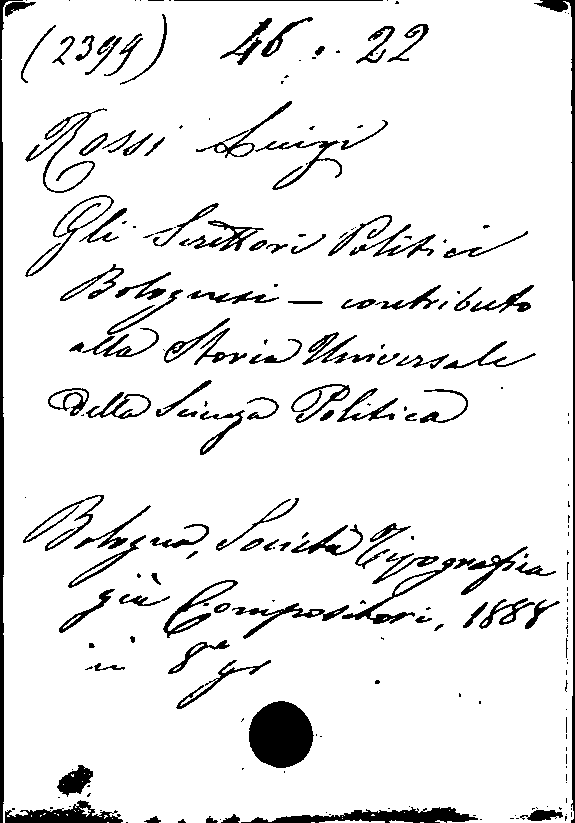 (2399) 46 . 22
Rossi Luigi
Gli Scrittori Politici
Bolognesi — contributo
alla Storia Universale
della Scienza Politica
Bologna, Società Tipografica
già Compositori, 1888
in 8° gr